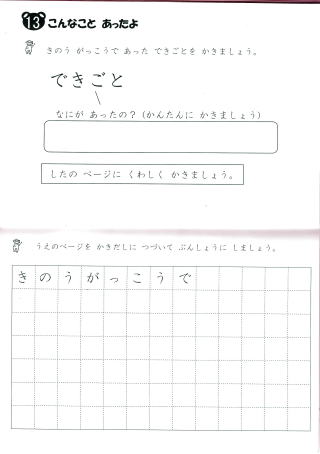 13 こんなこと あったよ
きのう がっこうで あった できごとを かきましょう。
できごと
なにが あったの？（かんたんに かきましょう）
したの ページに くわしく かきましょう。
うえのページを かきだしに つづいて ぶんしょうに しましょう。
きのうがっこうで